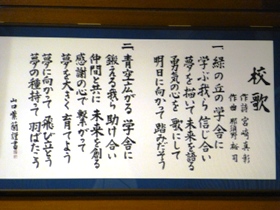 校歌
作詩 宮崎真彰
作曲 那須野裕司
一、緑の丘の学舎に
学ぶ我ら信じ合い
夢を描いて未来を語る
勇気の心を歌にして
明日に向かって踏みだそう
二、青空広がる学舎に
鍛える我ら助け合い
仲間と共に未来を創る
感謝の心で繋がって
夢を大きく育てよう
夢に向かって飛び立とう
夢の種持って羽ばたこう